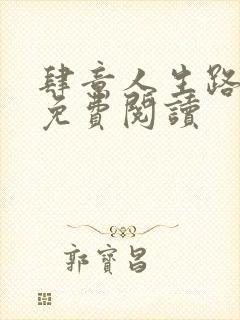 肆意人生路
免費閱讀
郭寶昌